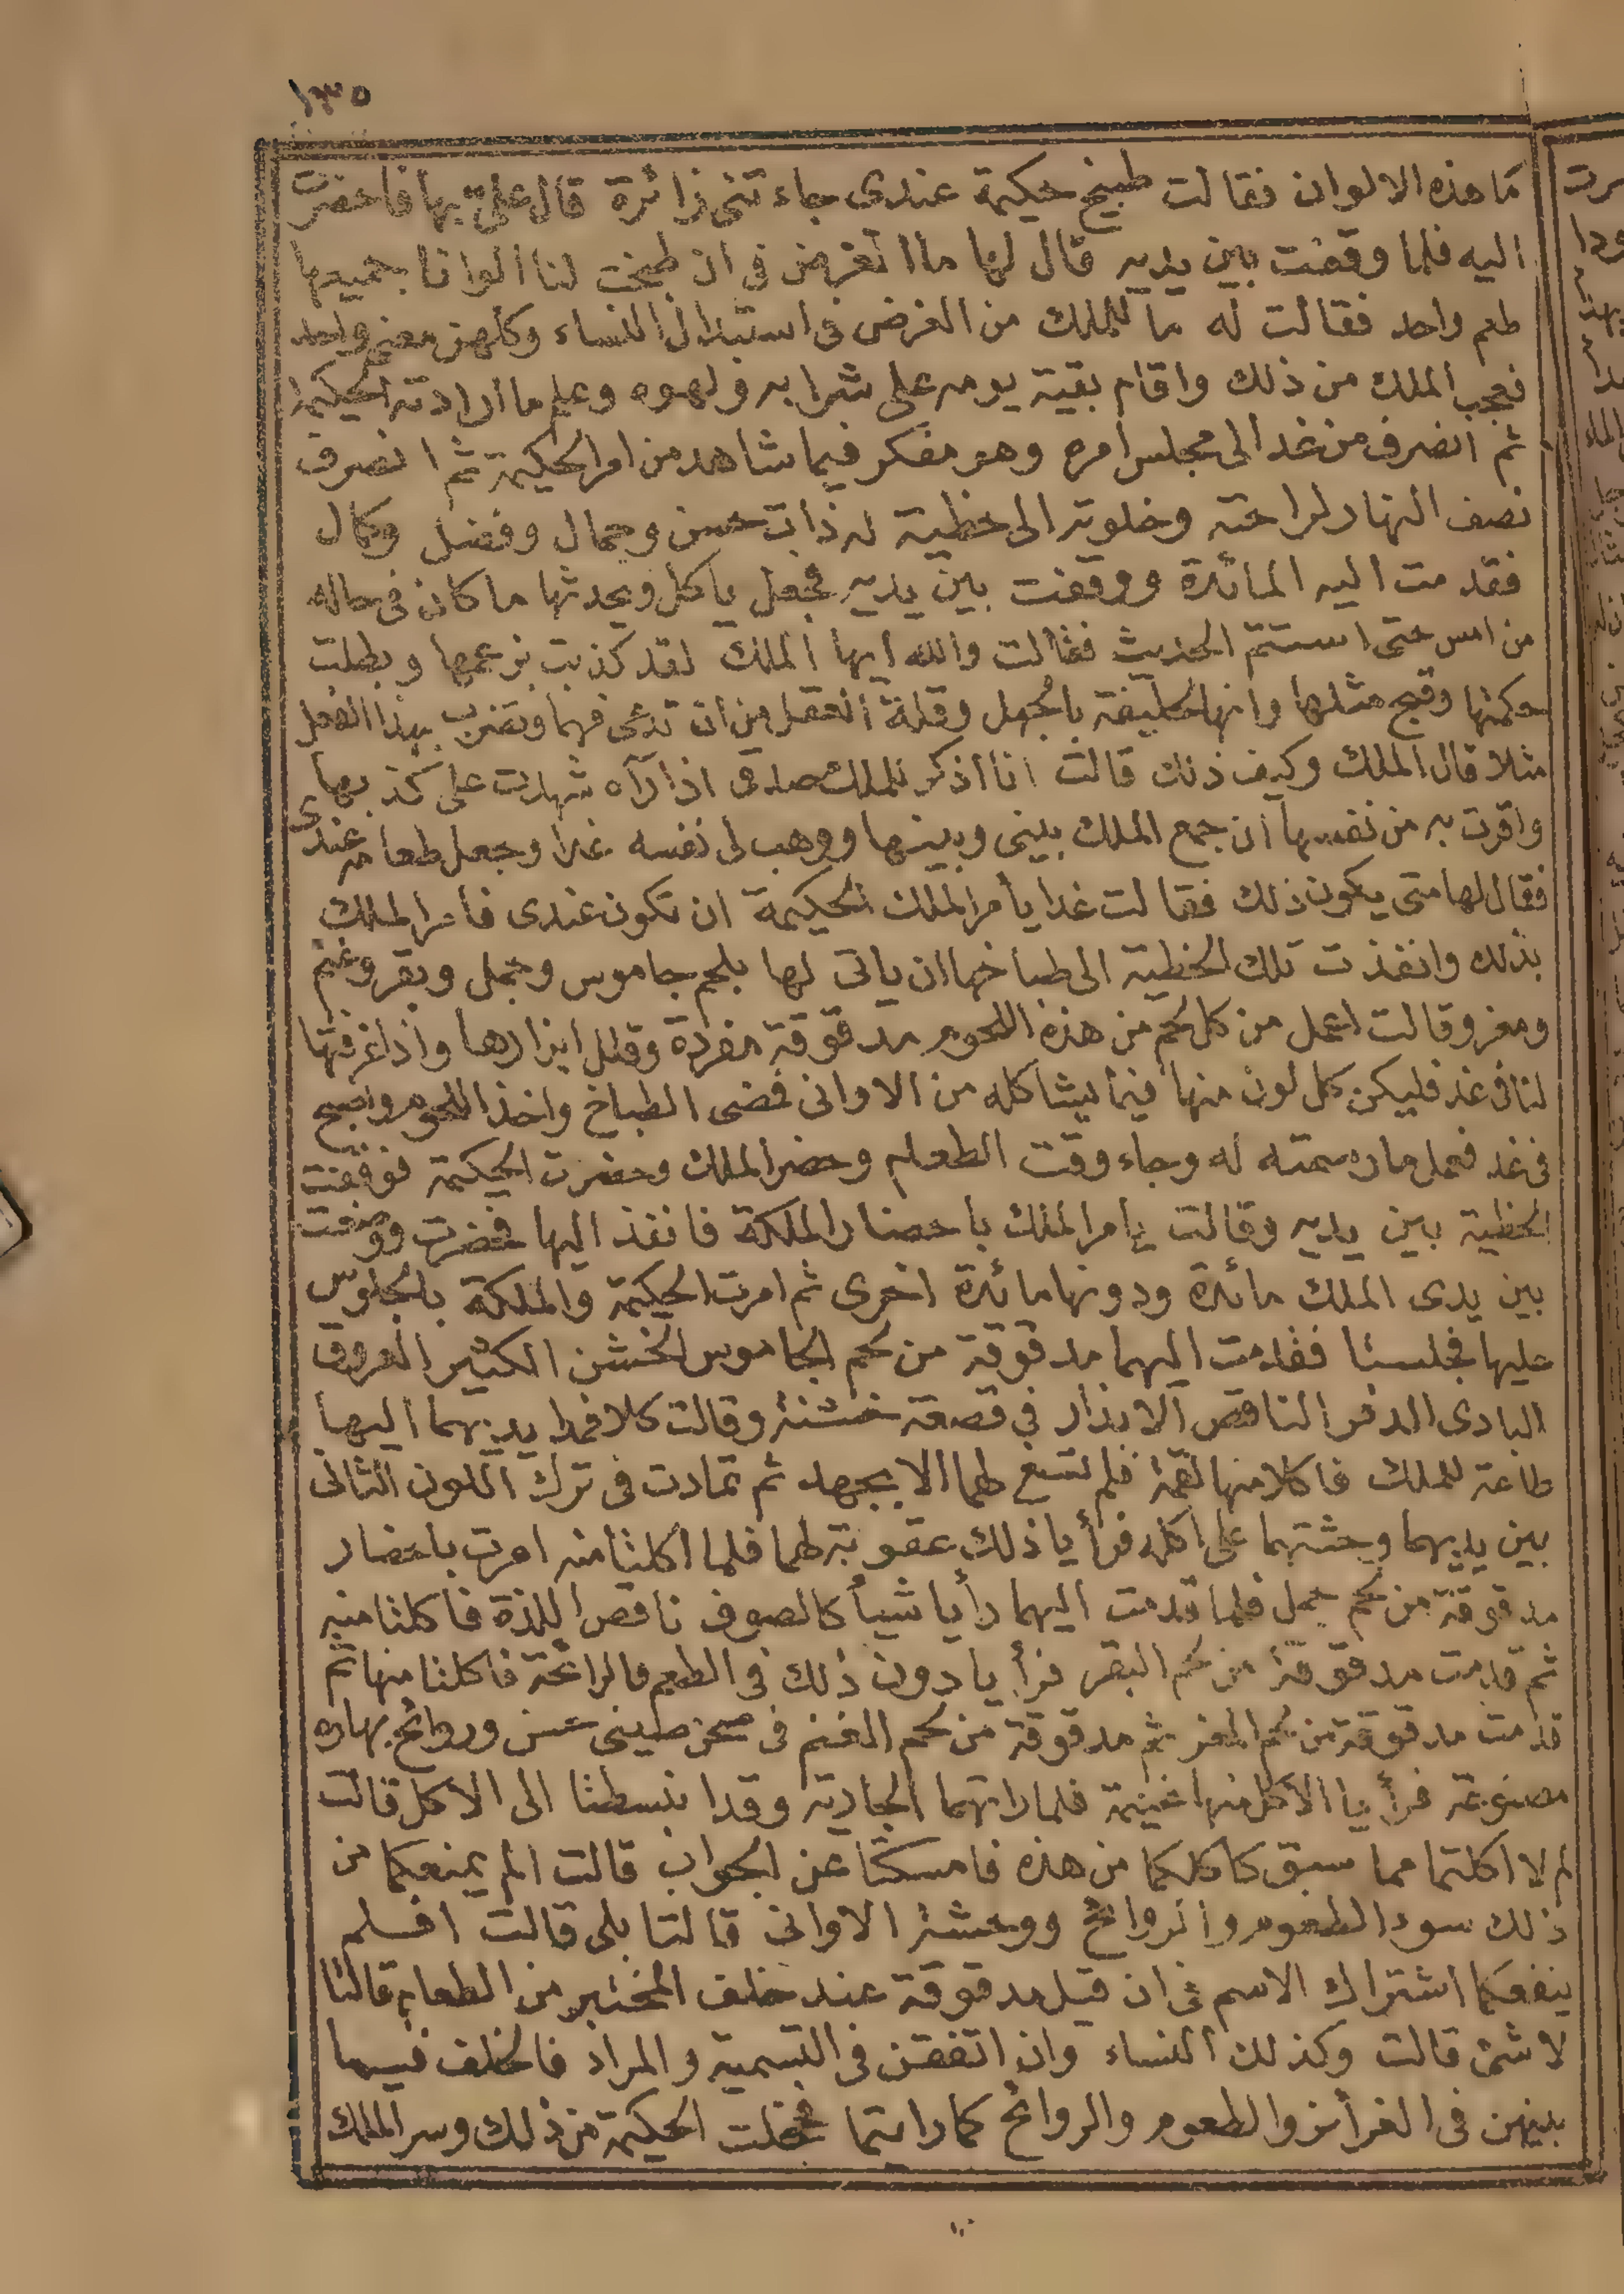 ١٣٥
ما هذه الالوان فقالت طبيخ حكيمة عندى جاءتنى زائرة قال على بها فاحضرت
اليه فلما وقفت بين يديه قال لها ما الغرض فى ان طبخت لنا الوانا جميعها
طعم واحد فقالت له ما للملك من الغرض فى استبدال النساء وكلهن معنى واحد
فعجب الملك من ذلك واقام بقية يومه على شرابه ولهوه وعلم ما ارادته الحكيمة
ثم انصرف من غد الى مجلس امره وهو مفكر فيما شاهد من امر الحكيمة ثم انصرف
نصف النهار لراحته وخلوته الى حظية له ذات حسن وجمال وفضل وكمال
فقدمت اليه المائدة ووقفت بين يديه فجعل ياكل ويحدثها ما كان فى حاله
من امس حتى استتم الحديث فقالت والله ايها الملك لقد كذبت بزعمها وبطلت
حكمتها وقبح مثلها وانها لخليقة بالجهل وقلة العقل من ان تدعى فهما وتضرب بهذا الفعل
مثلا قال الملك وكيف ذلك قالت انا اذكر للملك صدقى اذا رآه شهدت على كذبها
واقرت به من نفسها ان جمع الملك بينى وبينها ووهب لى نفسه غدا وجعل طعامه عندى
فقال لها متى يكون ذلك فقالت غدا يأمر الملك الحكيمة ان تكون عندى فأمر الملك
بذلك وانفذت تلك الحظية الى طباخها ان ياتى لها بلحم جاموس وجمل وبقر وغنم
ومعز وقالت اعمل من كل لحم من هذه اللحوم مدقوقة مفردة وقلل ابزارها واذا غرفتها
لنا فى غد فليكن كل لون منها فيما يشاكله من الاوانى فمضى الطباخ واخذ اللحوم واصبح
فى غد فعمل ما رسمته له وجاء وقت الطعام وحضر الملك وحضرت الحكيمة فوقفت
الحظية بين يديه وقالت يامر الملك باحضار الملكة فانفذ اليها فحضرت ووضعت
بين يدى الملك مائدة ودونها مائدة اخرى ثم امرت الحكيمة والملكة بالجلوس
عليها فجلستا فقدمت اليهما مدقوقة من لحم الجاموس الخشن الكثير العروق
البادى الدفر الناقص الابزار فى قصعة خشنة وقالت كلا فمدا يديهما اليها
طاعة للملك فاكلا منها لقمة فلم تسغ لهما الا بجهد ثم تمادت فى ترك اللون الثانى
بين يديهما وحثتهما على اكله فرأيا ذلك عقوبة لهما فلما اكلتا منه امرت باحضار
مدقوقة من لحم جمل فلما قدمت اليهما رأيا شيأ كالصوف ناقص اللذة فاكلتا منه
ثم قدمت مدقوقة من لحم البقر فرأيا دون ذلك فى الطعم والرائحة فاكلتا منها ثم
قدمت مدقوقة من لحم المعز ثم مدقوقة من لحم الغنم فى صحن صينى حسن وروائح بهاره
مصنوعة فرأيا الاكل منها غنيمة فلما راتهما الجارية وقد انبسطتا الى الاكل قالت
لم لا اكلتما مما سبق كاكلكما من هذه فامسكتا عن الجواب قالت الم يمنعكما من
ذلك سوء الطعوم والروائح ووحشة الاوانى قالتا بلى قالت افلم
ينفعكما اشتراك الاسم فى ان قيل مدقوقة عند خلف المختبر من الطعام قالتا
لا شئ قالت وكذلك النساء وان اتفقن فى التسمية والمراد فالخلف فيما
بينهن فى الغرائز والطعوم والروائح كما رايتما فخجلت الحكيمة من ذلك وسر الملك